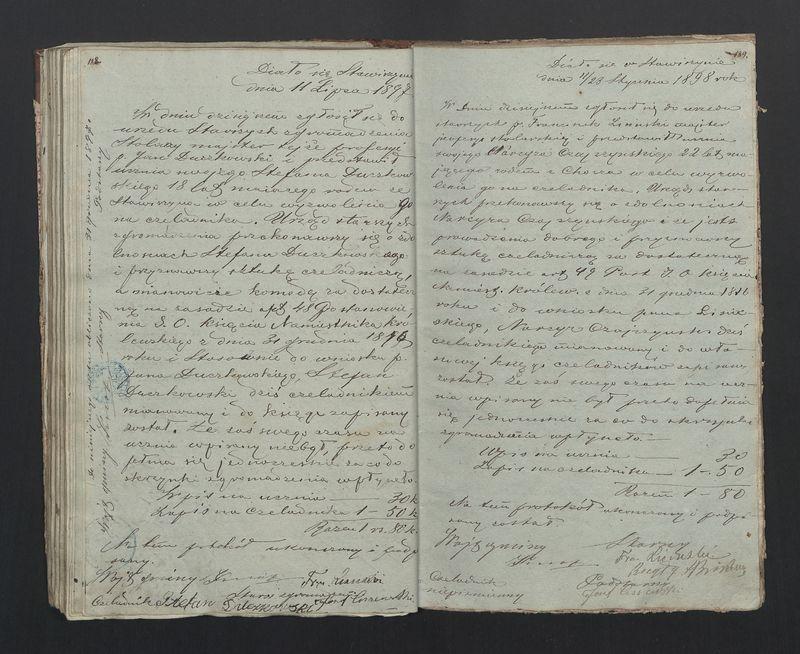 118.
Działo się Stawiszynie
dnia 11 Lipca 1897
W dniu dzisiejszem zgłosił się do
urzędu Starszych zgromadzenia
Stolarzy majster tejże profesyi
p. Jan Duczkowski i przedstawił
ucznia swojego Stefana Duczkow-
skiego 18 lat mającego rodem ze
Stawiszyna w celu wyzwolenia go
na czeladnika. Urząd starszych
zgromadzenia przekonawszy się o zdol-
nościach Stefana Duczkowskiego
i przyznawszy sztukę czeladniczą,
a mianowicie komodę za dostatecz-
ną na zasadzie art 48 Postanowie-
nia J. O. Księcia Namiestnika Kró-
lewskiego z dnia 31 grudnia 1816
roku i Stosownie do wniosku p.
Jana Duczkowskiego, Stefan
Duczkowski dziś czeladnikiem
mianowany i do księgi zapisany
został. Że zaś swego czasu na
ucznia wpisany nie był, przeto do-
pełnia się jednocześnie za co do
skrzynki zgromadzenia wpłynęło
Wpis na ucznia — 30 k
Zapis na czeladnika 1 — 50 k
Razem 1 rs. 80 k.
Na tem protokół ukończony i podpi-
sany.
Wójt gminy
Starsi zgromadzenia
Czeladnik Stefan Duczkowski
139.
Działo się w Stawiszynie
dnia 11/23 Stycznia 1898 rok
W Dniu dzisiejszem zgłosił się do urzędu
starszych p. Franciszek Lisiński majster
profesyi stolarskiej i przedstawił ucznia
swojego Narcyza Czajczyńskiego 22 lat ma-
jącego rodem z Chocza w celu wyzwo-
lenia go na czeladnika. Urząd star-
szych przekonawszy się o zdolnościach
Narcyza Czajczyńskiego i że jest
prowadzenia dobrego i przyznawszy
sztukę czeladniczą za dostateczną
na zasadzie art 49 Post J. O. Księcia
Namiest. Królew. z dnia 31 grudnia 1816
roku i do wniosku pana Lisiń-
skiego, Narcyz Czajczyński dziś
czeladnikiem mianowany i do wła-
ściwej księgi czeladników zapisany
został. Że zaś swego czasu na ucz-
nia wpisany nie był przeto dopełnia
się jednocześnie za co do skrzynki
zgromadzenia wpłynęło —
Wpis na ucznia — 30
Zapis na czeladnika — 1 — 50
Razem 1 — 80
Na tem protokół ukończony i podpi-
sany został
Wójt gminy
Starszy
Podstarszy
Czeladnik
niepiśmienny